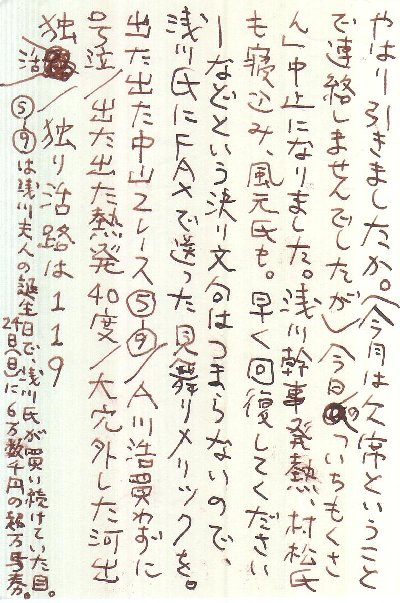 やはり引きましたか。(今月は欠席ということ
で連絡しませんでしたが)今日の「いちもくさ
ん」中止になりました。浅川幹事発熱、村松氏
も寝込み、風元氏も。早く回復してください
ーなどという決り文句はつまらないので、
浅川氏にFAXで送った見舞リメリックを。
出た出た中山2レース⑤-⑨/A川浩買わずに
号泣/出た出た熱発40度/大穴外した河出
独活/独り活路は119
⑤-⑨は浅川夫人の誕生日で、浅川氏が買い続けていた目。
24日(日)に6万数千円の超万馬券。